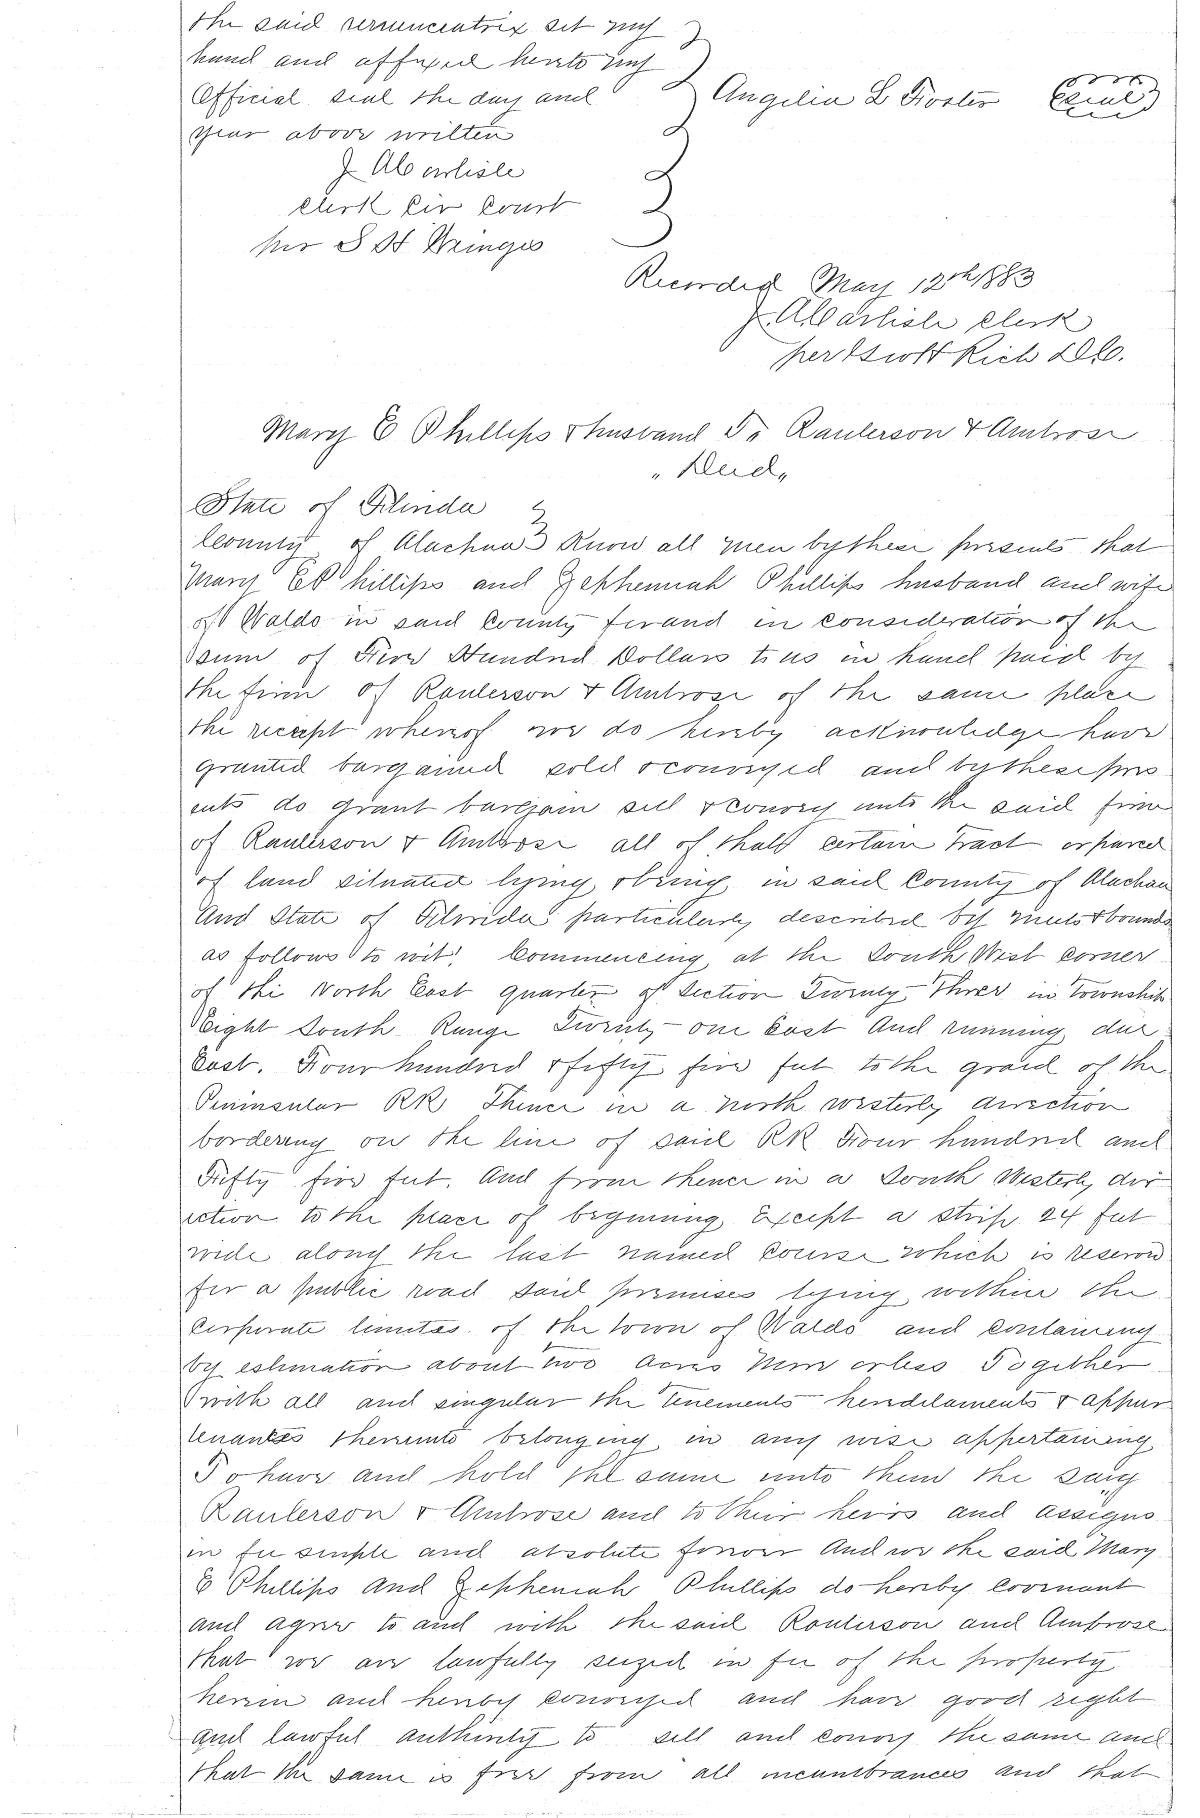 the said renunceatrix set my
hand and affixed hereto my
Official seal the day and
year above written
Angelia L Foster (seal)
J A Carlisle
clerk Cir Court
per S H
Recorded May 12th 1883
J. A. Carlisle clerk
per Scott Rich D.C.
Mary E Phillips & husband To Raulerson & Ambrose
" Deed "
State of Florida
County of Alachua Know all men by these presents that
Mary E Phillips and Zepheniah Phillips husband and wife
of Waldo in said County for and in consideration of the
sum of Five Hundred Dollars to us in hand paid by
the firm of Raulerson & Ambrose of the same place
the receipt whereof we do hereby acknowledge have
granted bargained sold & conveyed and by these pres
ents do grant bargain sell & convey unto the said firm
of Raulerson & Ambrose all of that certain tract or parcel
of land situated lying & being in said County of Alachua
And State of Florida particularly described by meets & bounds
as follows to wit: Commencing at the South West corner
of the North East quarter of Section Twenty-Three in township
Eight South Range Twenty-one East And running due
East. Four hundred & fifty five feet to the graid of the
Peninsular RR Thence in a north westerly direction
bordering on the line of said RR Four hundred and
Fifty five feet. And from thence in a South Westerly dir
ection to the place of begining Except a strip 24 feet
wide along the last named course which is reserved
for a public road said premises lying within the
Corporate limitas of the town of Waldo and containing
by estimation about two acres more or less Together
with all and singular the tenements heredilaments & appur
tenantes thereunto belonging in any wise appertaining
To have and hold the same unto them the said
Raulerson & Ambrose and to their heirs and assigns
in fee simple and absolute forever And we the said Mary
E Phillips And Zepheniah Phillips do hereby covenant
and agree to and with the said Raulerson and Ambrose
that we are lawfully seized in fee of the property
herein and hereby conveyed and have good right
and lawful authority to sell and convey the same and
that the same is free from all incumbrances and that